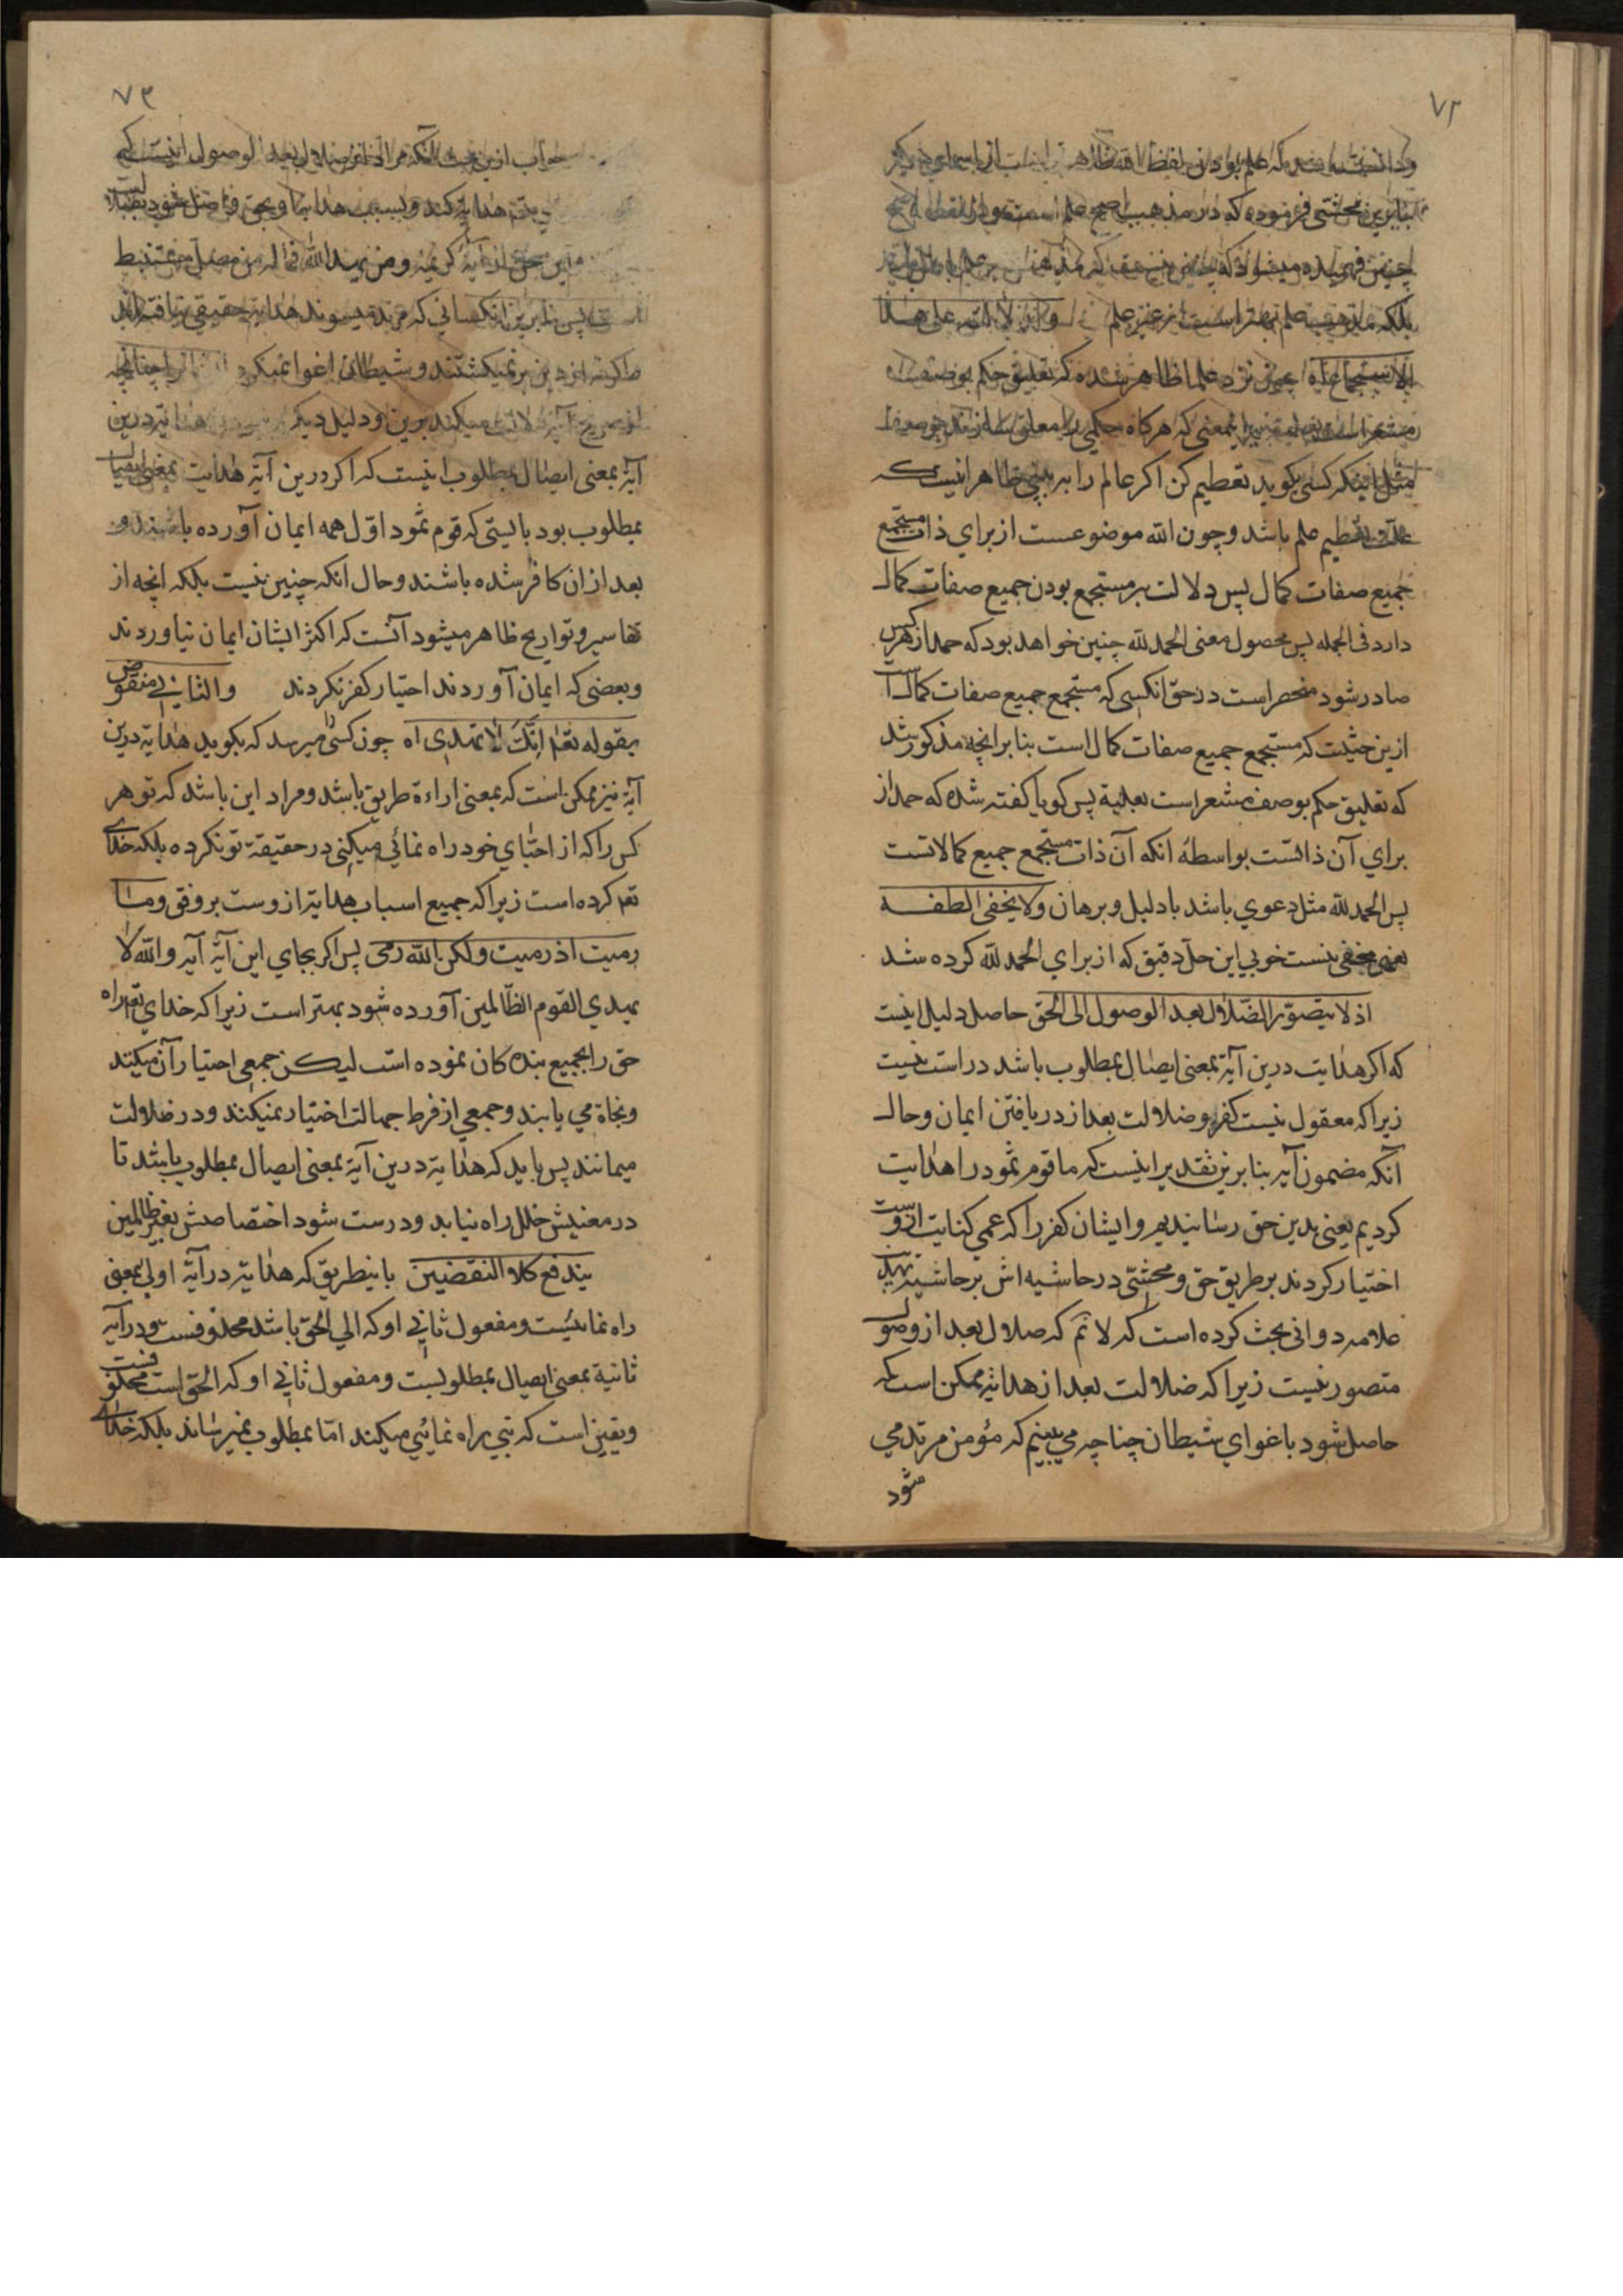 ٧٢
بنابرین محشی فرموده که در مذهب اصح علم است
چنین فهمیده میشود که
بلکه مذهب علم بهتر است از غیر علم
الاستجماع چون نزد علما ظاهر شده که تعلیق حکم بوصف
باینمعنی که هرکاه حکمی را معلق سازند بوصفی
مثل اینکه کسی بکوید تعظیم کن اکر عالم را به بینی ظاهر اینست که
علت تعظیم علم باشد وچون الله موضوعست از برای ذات مستجمع
جمیع صفات کمال پس دلالت بر مستجمع بودن جمیع صفات کمال
دارد فی الجمله پس محصول معنی الحمد لله چنین خواهد بود که حمد از هر کس
صادر شود منحصر است در حق انکسی که مستجمع جمیع صفات کمال است
ازین حیثیت که مستجمع جمیع صفات کمال است بنابر انچه مذکور شد
که تعلیق حکم بوصف مشعر است بعلیة پس کویا کفته شده که حمد از
برای آن ذاتست بواسطهٔ انکه آن ذات مستجمع جمیع کمالاتست
پس الحمد لله مثل دعوی باشد با دلیل وبرهان ولا یخفی لطفه
یعنی مخفی نیست خوبی این حل دقیق که از برای الحمد لله کرده شد
اذ لا یتصور الضلال بعد الوصول الی الحق حاصل دلیل اینست
که اکر هدایت درین آیة بمعنی ایصال بمطلوب باشد دراست نیست
زیراکه معقول نیست کفر وضلالت بعد از دریافتن ایمان وحال
آنکه مضمون آیه بنابرین تقدیر اینست که ما قوم ثمود را هدایت
کردیم یعنی بدین حق رسانیدیم وایشان کفر را که عمی کنایت ازوست
اختیار کردند بر طریق حق ومحشی در حاشیه اش بر حاشیه تهذیب
علامه دوانی بحث کرده است که لا نم که ضلال بعد از وصول
متصور نیست زیراکه ضلالت بعد از هدایة ممکن است که
حاصل شود باغوای شیطان چناچه می بینیم که مؤمن مرتد می
شود
٧٣
جواب ازین بحث آنکه مراد از ضلال بعد الوصول اینست که
هدایة کند وبسبب هدایة او بحق واصل شود
این معنی از آیهٔ کریمه ومن یهد الله فما له من مضل مستنبط
پس بنابرین انکسانی که مرتد میشوند هدایة حقیقی نیافته اند
واکر نه از دین بر نمیکشتند وشیطان اغوا نمیکرد چنانچه
دلالت میکند برین ودلیل دیکر هدایة درین
آیهٔ بمعنی ایصال بمطلوب اینست که اکر درین آیة هدایت بمعنی ایصال
بمطلوب بود بایستی که قوم ثمود اوّل همه ایمان آورده باشند و
بعد از ان کافر شده باشند وحال انکه چنین نیست بلکه انچه از
تفاسیر وتواریخ ظاهر میشود آنست که اکثر ایشان ایمان نیاوردند
وبعضی که ایمان آوردند اختیار کفر نکردند والثانی منقوض
بقوله تعم انّک لا تهدی اه چون کسی را میرسد که بکوید هدایة درین
آیة نیز ممکن است که بمعنی اراءة طریق باشد ومراد این باشد که تو هر
کس را که از احبّای خود راه نمائی میکنی در حقیقة تو نکرده بلکه خدای
تعم کرده است زیراکه جمیع اسباب هدایة ازوست بر وفق وما
رمیت اذ رمیت ولکن الله رمی پس اکر بجای این آیة آیه والله لا
یهدی القوم الظالمین آورده شود بهتر است زیراکه خدای تعم راه
حق را بجمیع بنده کان نموده است لیکن جمعی اختیار آن میکنند
ونجاة می یابند وجمعی از فرط جهالت اختیار نمیکنند ودر ضلالت
میمانند پس باید که هدایة درین آیة بمعنی ایصال بمطلوب باشد تا
در معنیش خلل راه نیابد ودرست شود اختصاصش بغیر ظالمین
یندفع کلا النقضین باینطریق که هدایة در آیة اولی بمعنی
راه نمائیست ومفعول ثانی او که الی الحق باشد محذوفست ودر آیه
ثانیة بمعنی ایصال بمطلوبست ومفعول ثانی او که الحق است محذوفست
ویقین است که نبی راه نمائی میکند امّا بمطلوب نمیرساند بلکه خدای